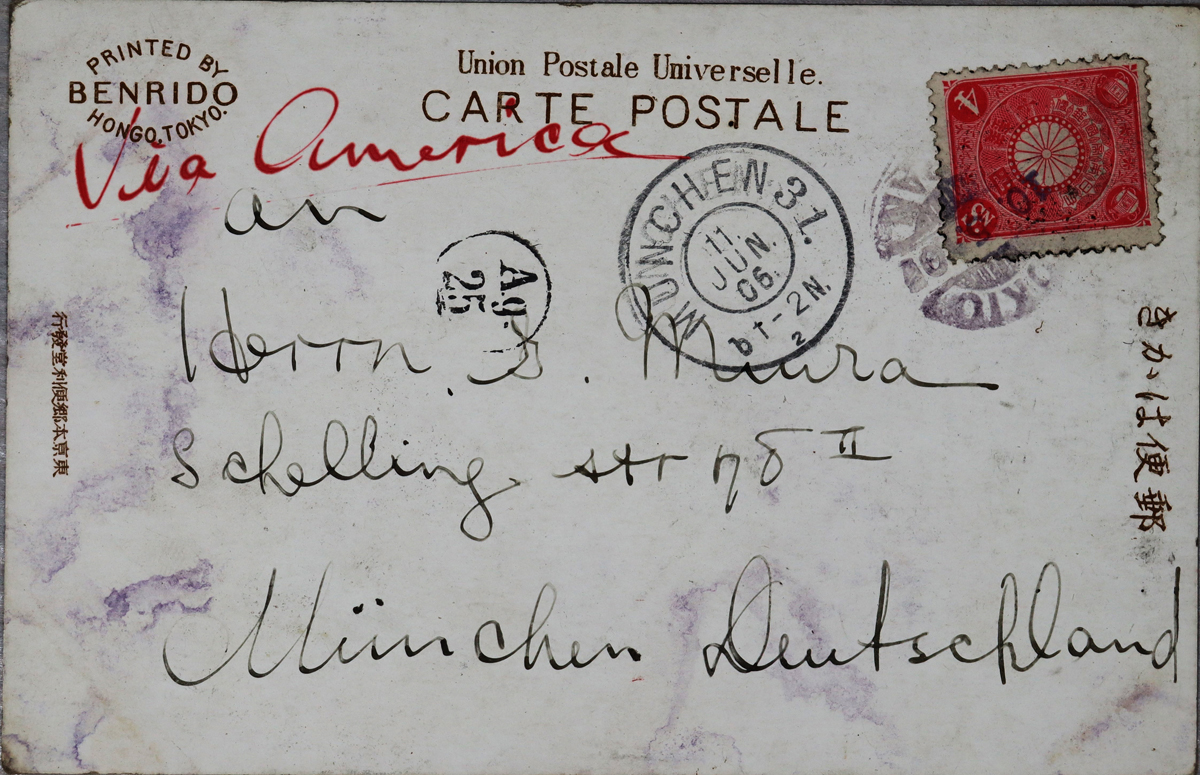 PRINTED BY
BENRIDO
HONGO.TOKYO.
Union Postale Universelle.
CARTE POSTALE
Via America
4
MÜNCHEN 31.
11
JUN.
06.
1-2N.
2
Ag.
25
an
Herrn. S. Miura
Schelling str 78 II
München Deutschland
郵便はかき
東京本郷便利堂發行